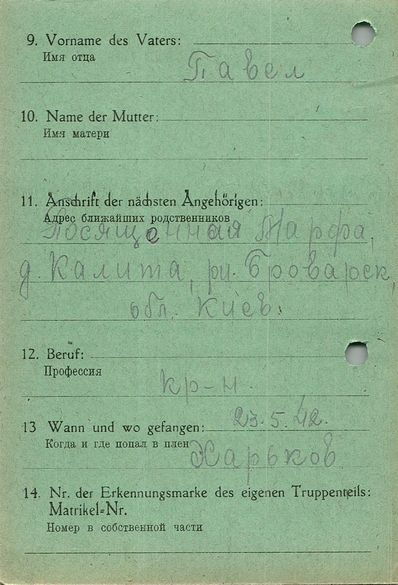 9. Vorname des Vaters:
Имя отца
Павел
10. Name der Mutter:
Имя матери
11. Anschrift der nächsten Angehörigen:
Адрес ближайших родственников
Марфа,
д. Калита, рн. Броварск,
обл. Киев.
12. Beruf:
Профессия
кр-н.
13 Wann und wo gefangen: 23.5.42.
Когда и где попал в плен
Харьков
14. Nr. der Erkennungsmarke des eigenen Truppenteils:
Matrikel=Nr.
Номер в собственной части